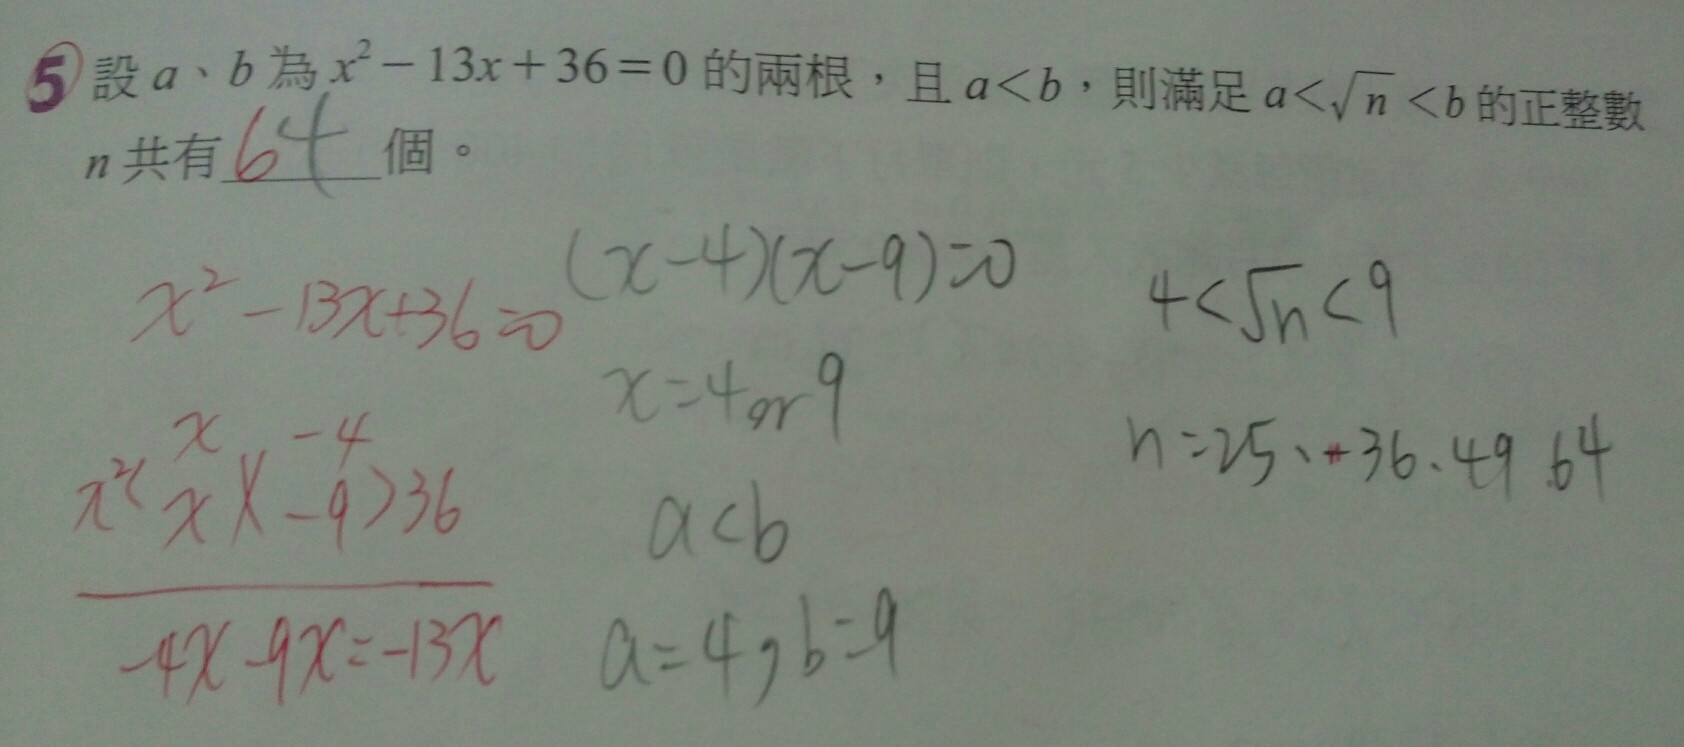 5 設 a、b 為 x² − 13x + 36 = 0 的兩根，且 a < b，則滿足 a < √n < b 的正整數
n 共有 64 個。
x² − 13x + 36 = 0
(x − 4)(x − 9) = 0
4 < √n < 9
x = 4 or 9
n = 25、36、49 64
x −4
x² < x )( −9 > 36
a < b
−4x −9x = −13x
a = 4, b = 9